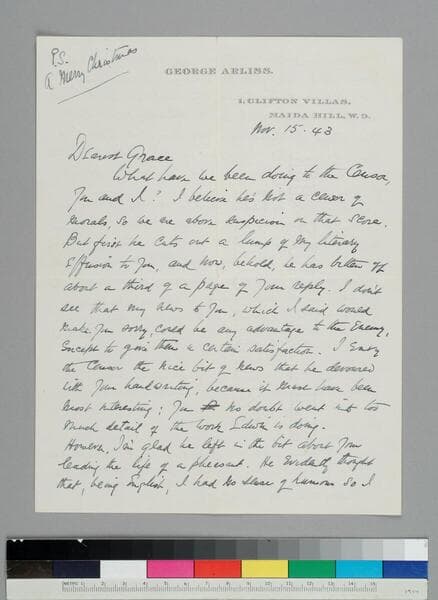 P.S.
A Merry Christmas
GEORGE ARLISS.
1, CLIFTON VILLAS,
MAIDA HILL, W.9.
Nov. 15-43
Dearest Grace
What have we been doing to the Censor,
You and I? I believe he's not a censor of
morals, so we are above suspicion on that score.
But first he cuts out a lump of my literary
effusion to you, and now, behold, he has bitten off
about a third of a page of your reply. I don't
see that my news to you, which I said would
make you sorry, could be any advantage to the Enemy,
except to give them a certain satisfaction. I envy
the Censor the nice bit of news that he devoured
with your handwriting, because it must have been
most interesting; you no doubt went into too
much detail of the work Edwin is doing.
However, I'm glad he left in the bit about your
leading the life of a pheasant. He evidently thought
that, being English, I had no sense of humour so I